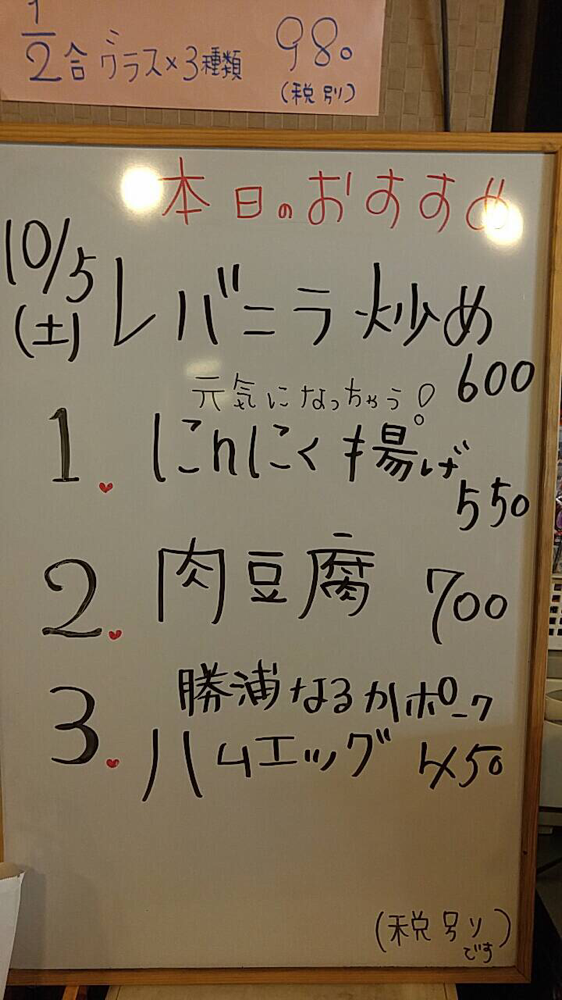 1/2合グラス×3種類 980
(税別)
本日のおすすめ
10/5
(土)
レバニラ炒め
600
元気になっちゃう!
1. にんにく揚げ
550
2. 肉豆腐 700
3. 勝浦なるかポーク
ハムエッグ 450
(税別りです)